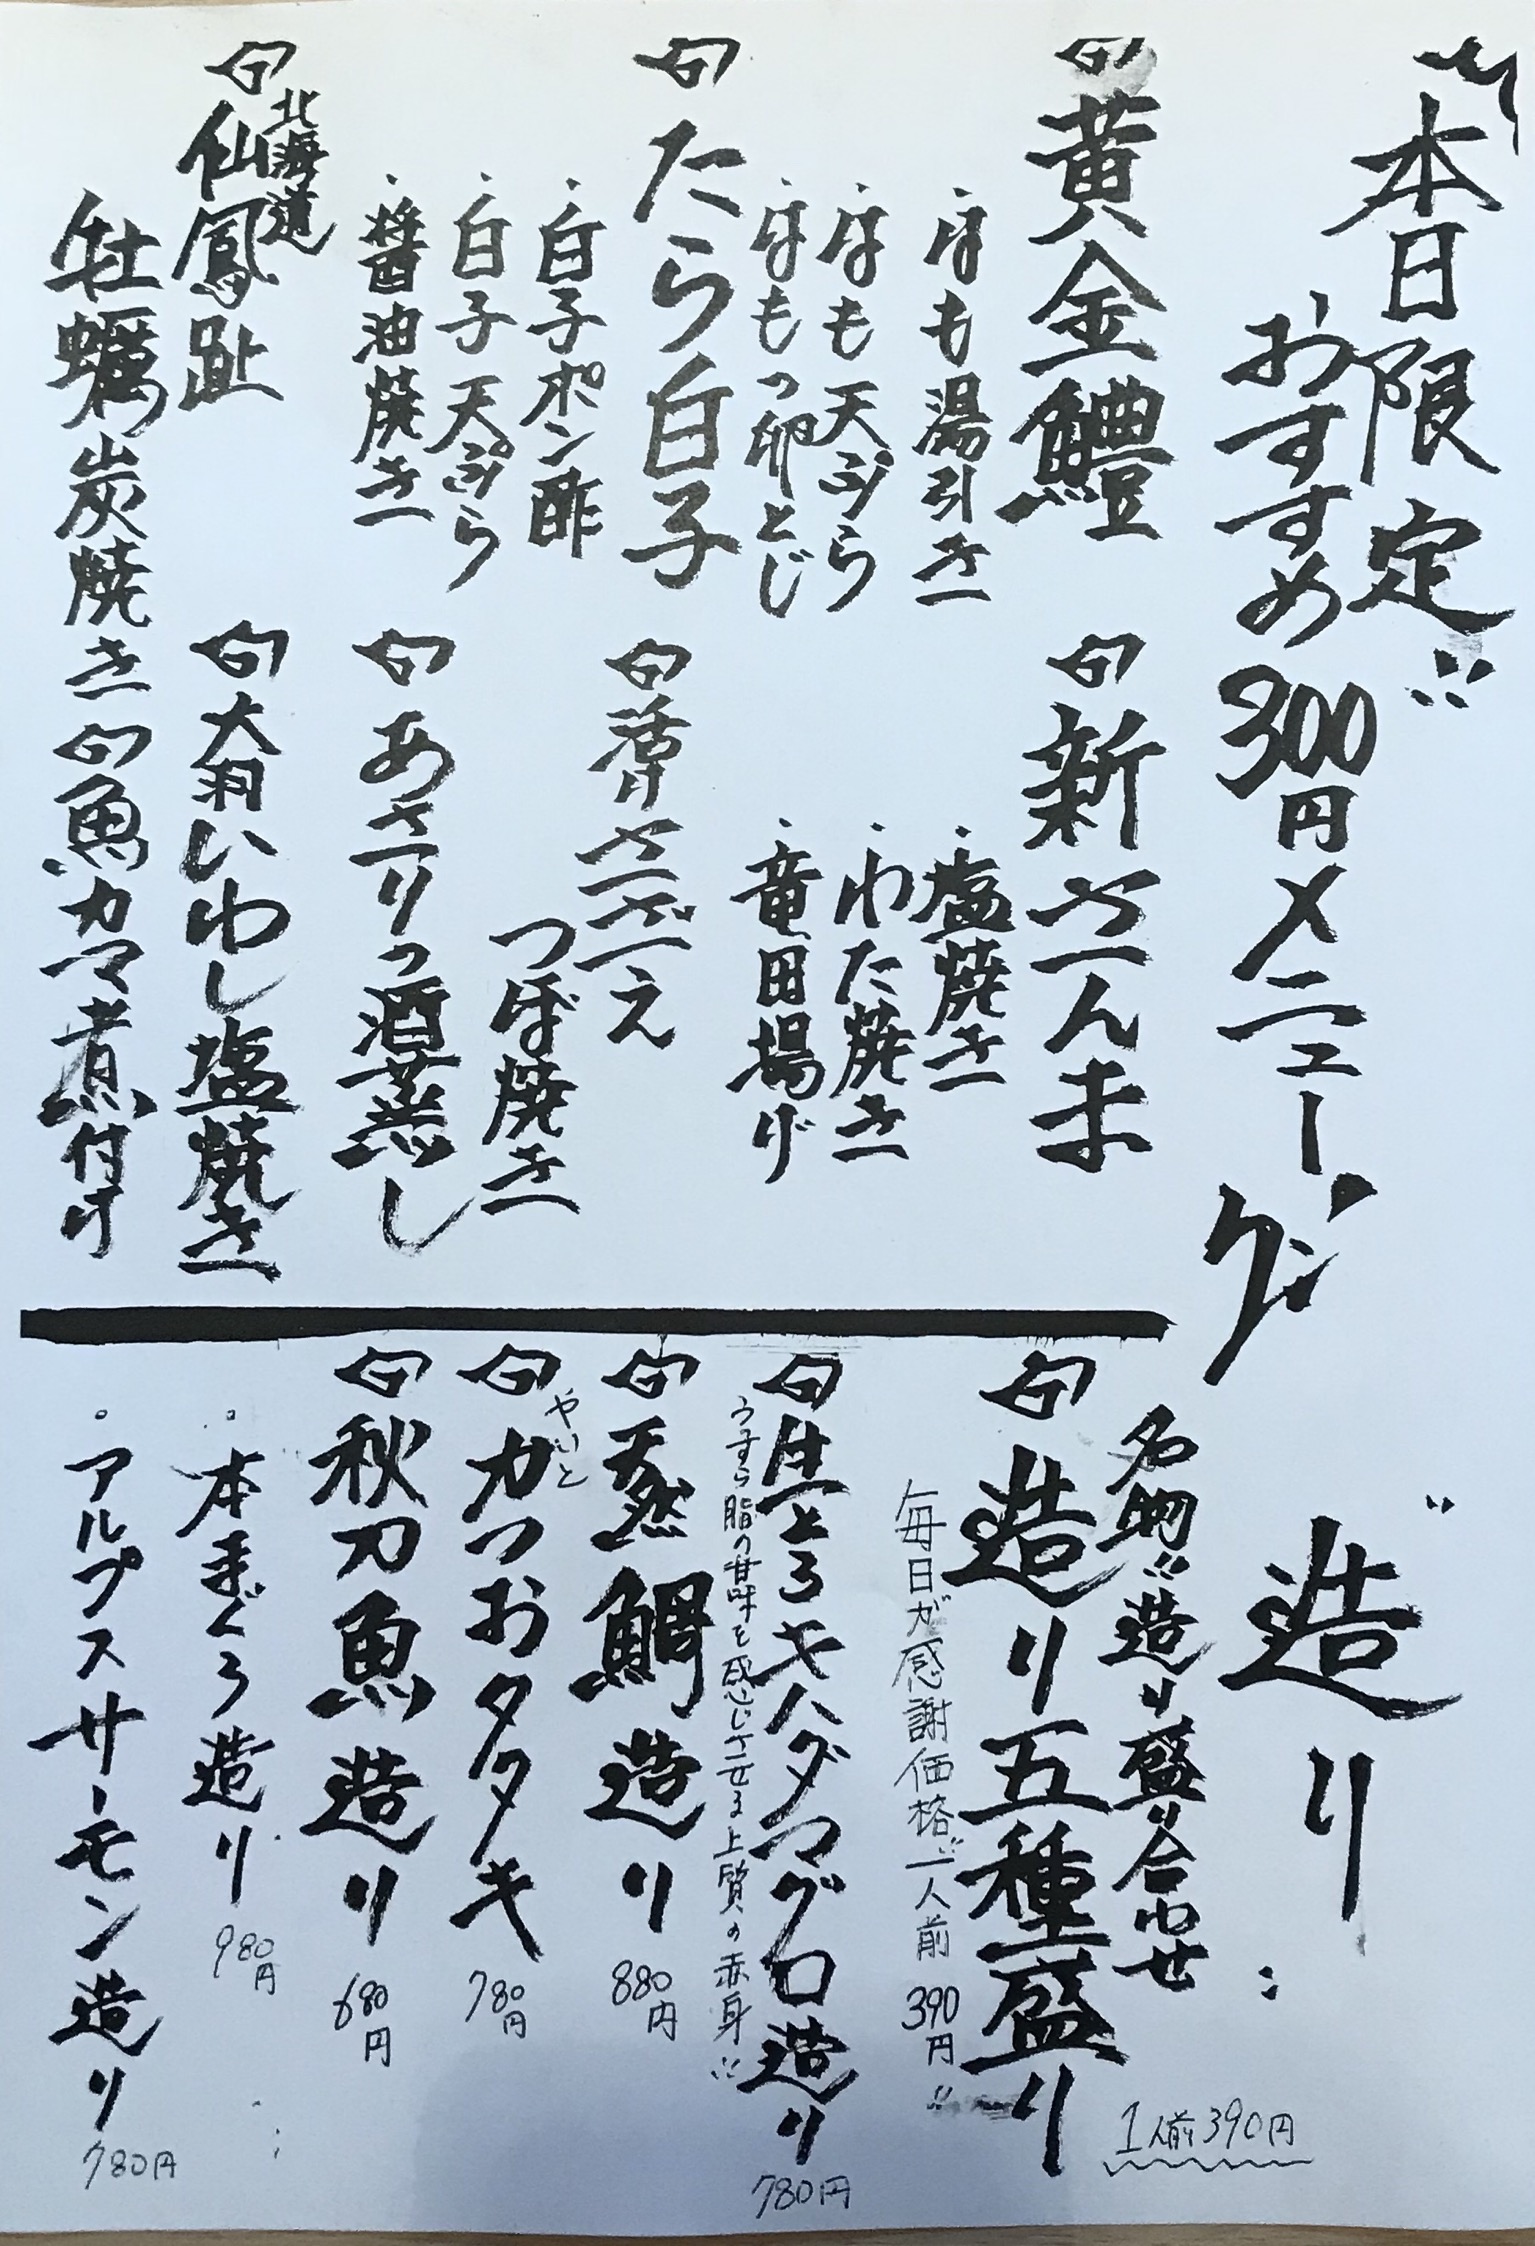 本日限定!!
おすすめ300円メニュー
黄金鱧
・はも湯引き
・はも天ぷら
・はもっ卵とじ
たら白子
・白子ポン酢
・白子天ぷら
・醤油焼き
北海道
仙鳳趾
牡蠣炭焼き
新さんま
・塩焼き
・わた焼き
・竜田揚げ
活けさざえ
つぼ焼き
あさりっ酒蒸し
大羽いわし塩焼き
魚カマ煮付け
造り
名物!!造り盛り合わせ
1人前390円
造り五種盛り
毎日が感謝価格!!一人前390円!!
生とろキハダマグロ造り 780円
うすら脂の甘味を感じさせる上質の赤身!!
天然鯛造り 880円
やいと
カつおタタキ 780円
秋刀魚造り 680円
・本まぐろ造り 980円
・アルプスサーモン造り 780円